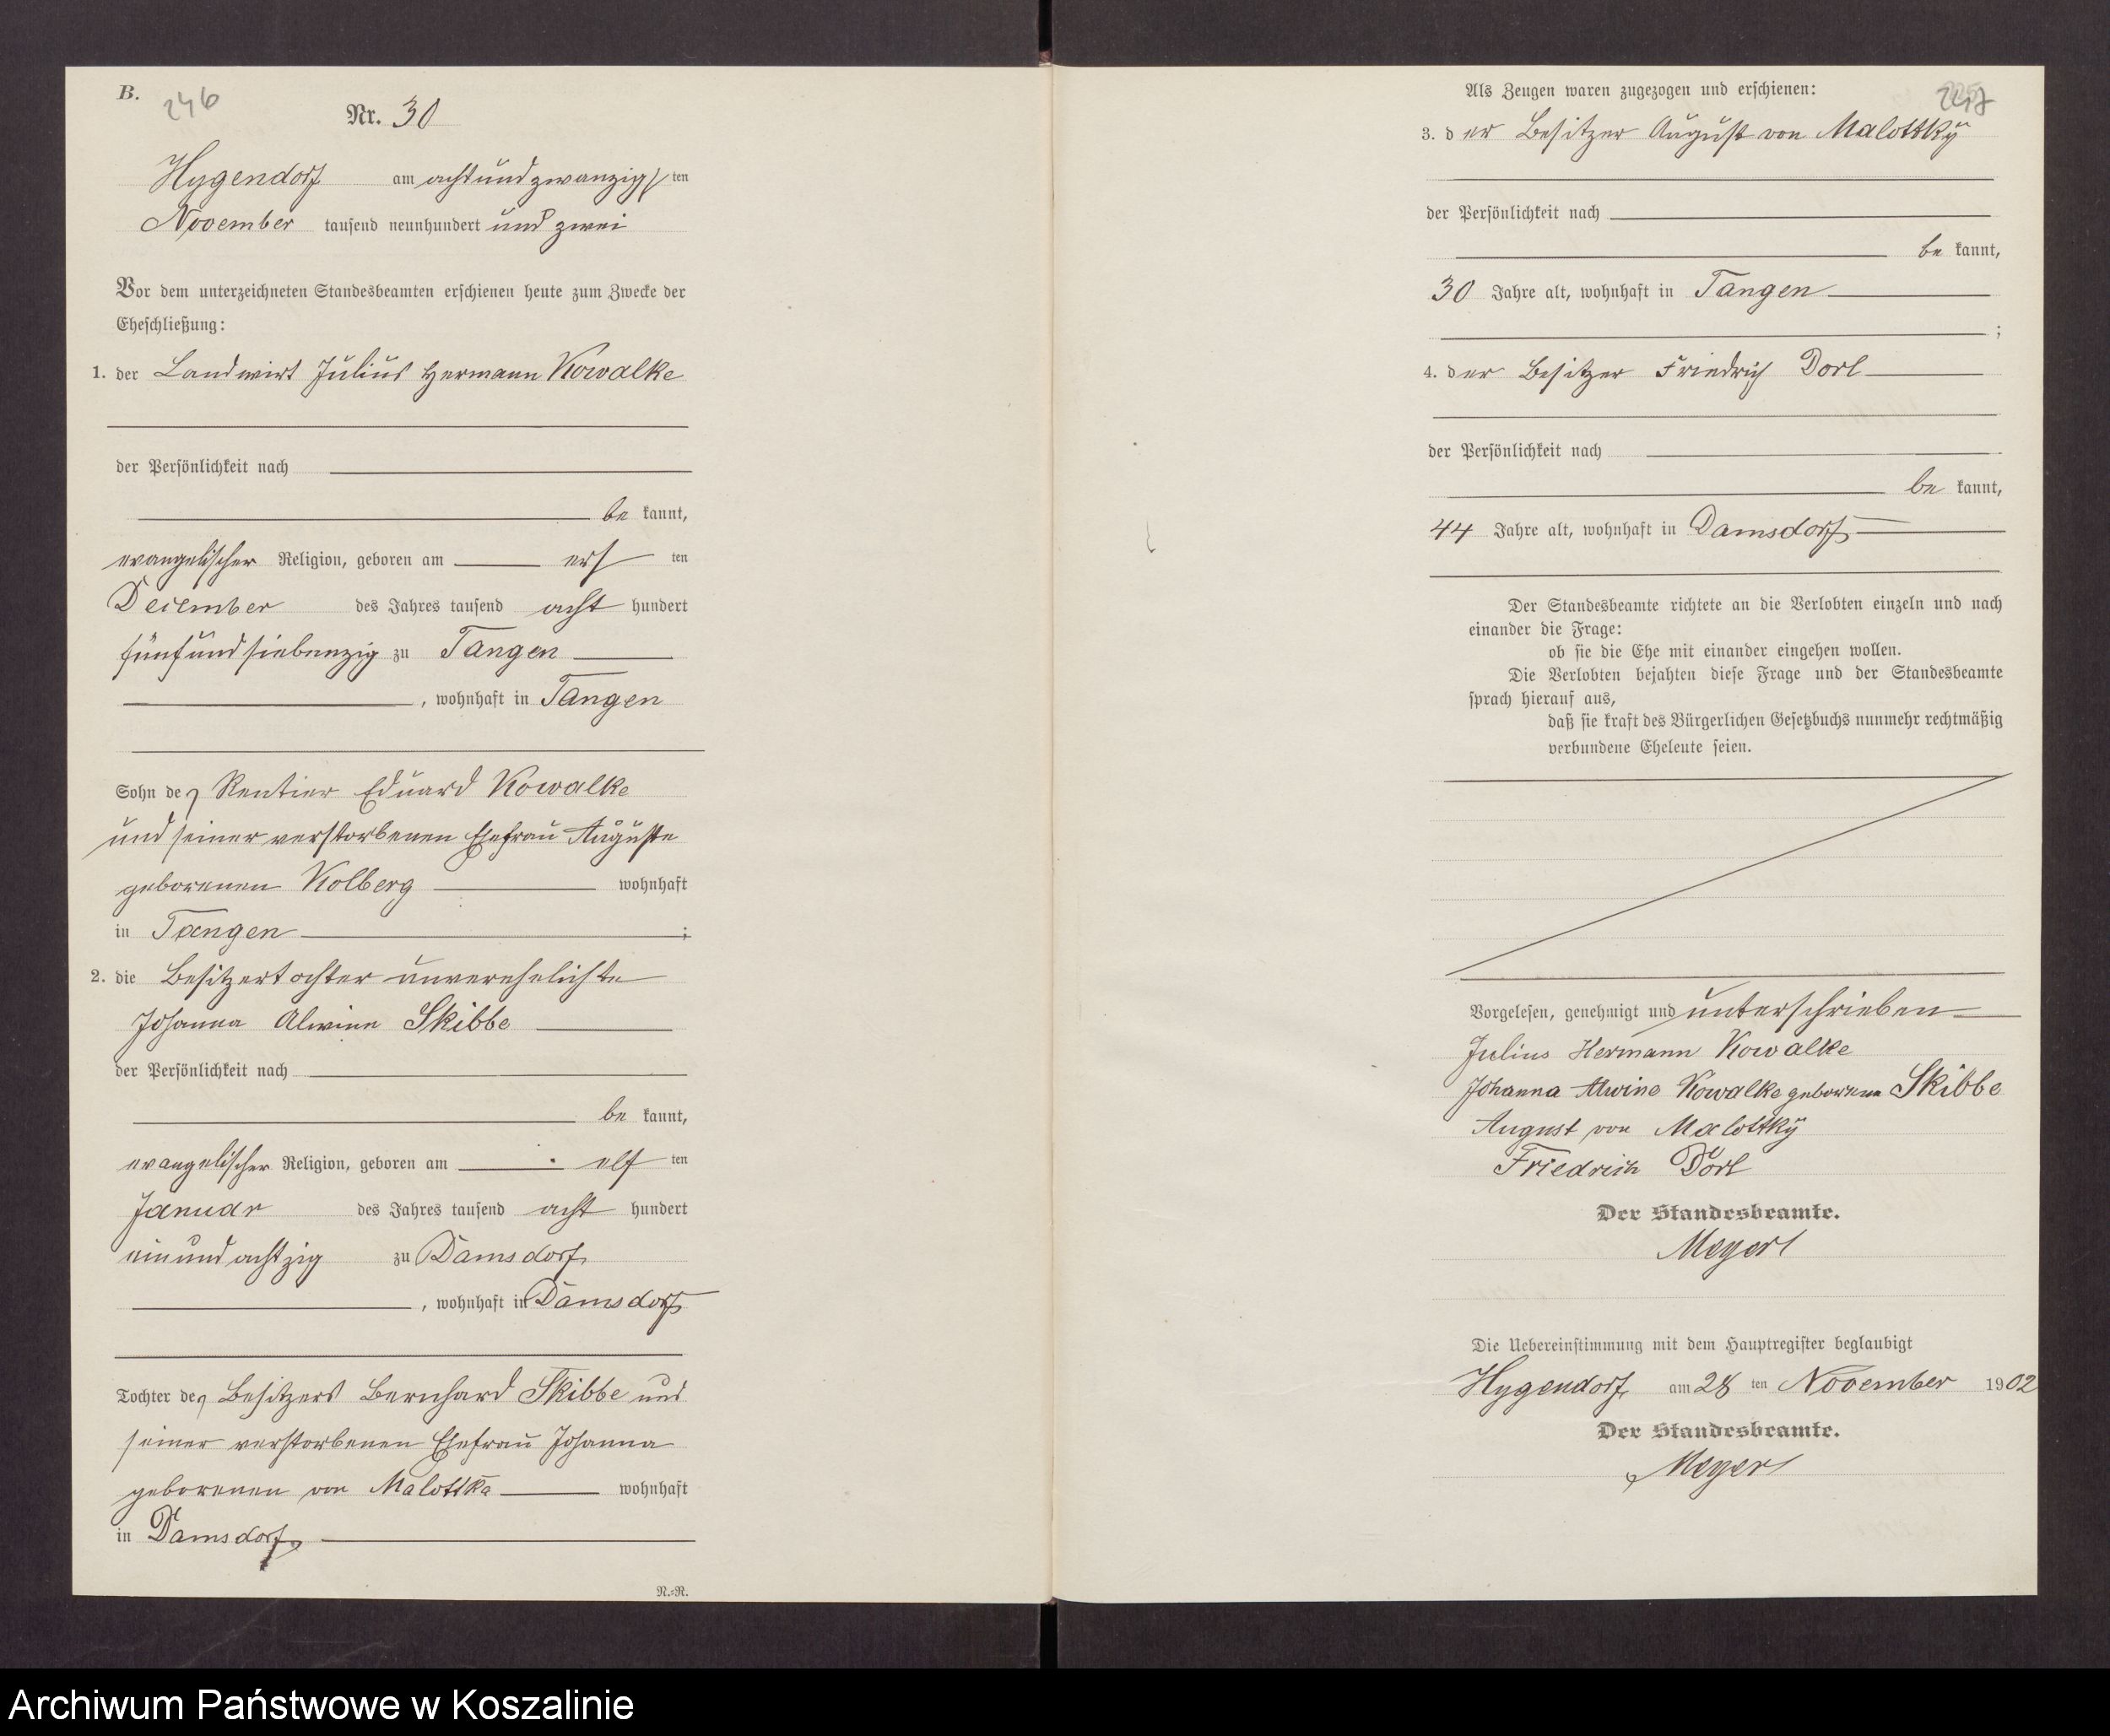 B.
246
Nr. 30
Hygendorf am achtundzwanzigsten
November tausend neunhundert und zwei
Vor dem unterzeichneten Standesbeamten erschienen heute zum Zwecke der
Eheschließung:
1. der Landwirt Julius Hermann Kowalke
der Persönlichkeit nach
be kannt,
evangelischer Religion, geboren am ersten
December des Jahres tausend acht hundert
fünfundsiebenzig zu Tangen
, wohnhaft in Tangen
Sohn des Rentier Eduard Kowalke
und seiner verstorbenen Ehefrau Auguste
geborenen Kolberg wohnhaft
in Tangen ;
2. die Besitzertochter unverehelichte
Johanna Alwine Skibbe
der Persönlichkeit nach
be kannt,
evangelischer Religion, geboren am elften
Januar des Jahres tausend acht hundert
einundachtzig zu Damsdorf
, wohnhaft in Damsdorf
Tochter des Besitzers Bernhard Skibbe und
seiner verstorbenen Ehefrau Johanna
geborenen von Malottka wohnhaft
in Damsdorf
N.-R.
247
Als Zeugen waren zugezogen und erschienen:
3. der Besitzer August von Malottky
der Persönlichkeit nach
be kannt,
30 Jahre alt, wohnhaft in Tangen
;
4. der Besitzer Friedrich Dorl
der Persönlichkeit nach
be kannt,
44 Jahre alt, wohnhaft in Damsdorf
Der Standesbeamte richtete an die Verlobten einzeln und nach
einander die Frage:
ob sie die Ehe mit einander eingehen wollen.
Die Verlobten bejahten diese Frage und der Standesbeamte
sprach hierauf aus,
daß sie kraft des Bürgerlichen Gesetzbuchs nunmehr rechtmäßig
verbundene Eheleute seien.
Vorgelesen, genehmigt und unterschrieben
Julius Hermann Kowalke
Johanna Alwine Kowalke geborene Skibbe
August von Malottky
Friedrich Dorl
Der Standesbeamte.
Meyer
Die Uebereinstimmung mit dem Hauptregister beglaubigt
Hygendorf am 28 ten November 1902
Der Standesbeamte.
Meyer
Archiwum Państwowe w Koszalinie